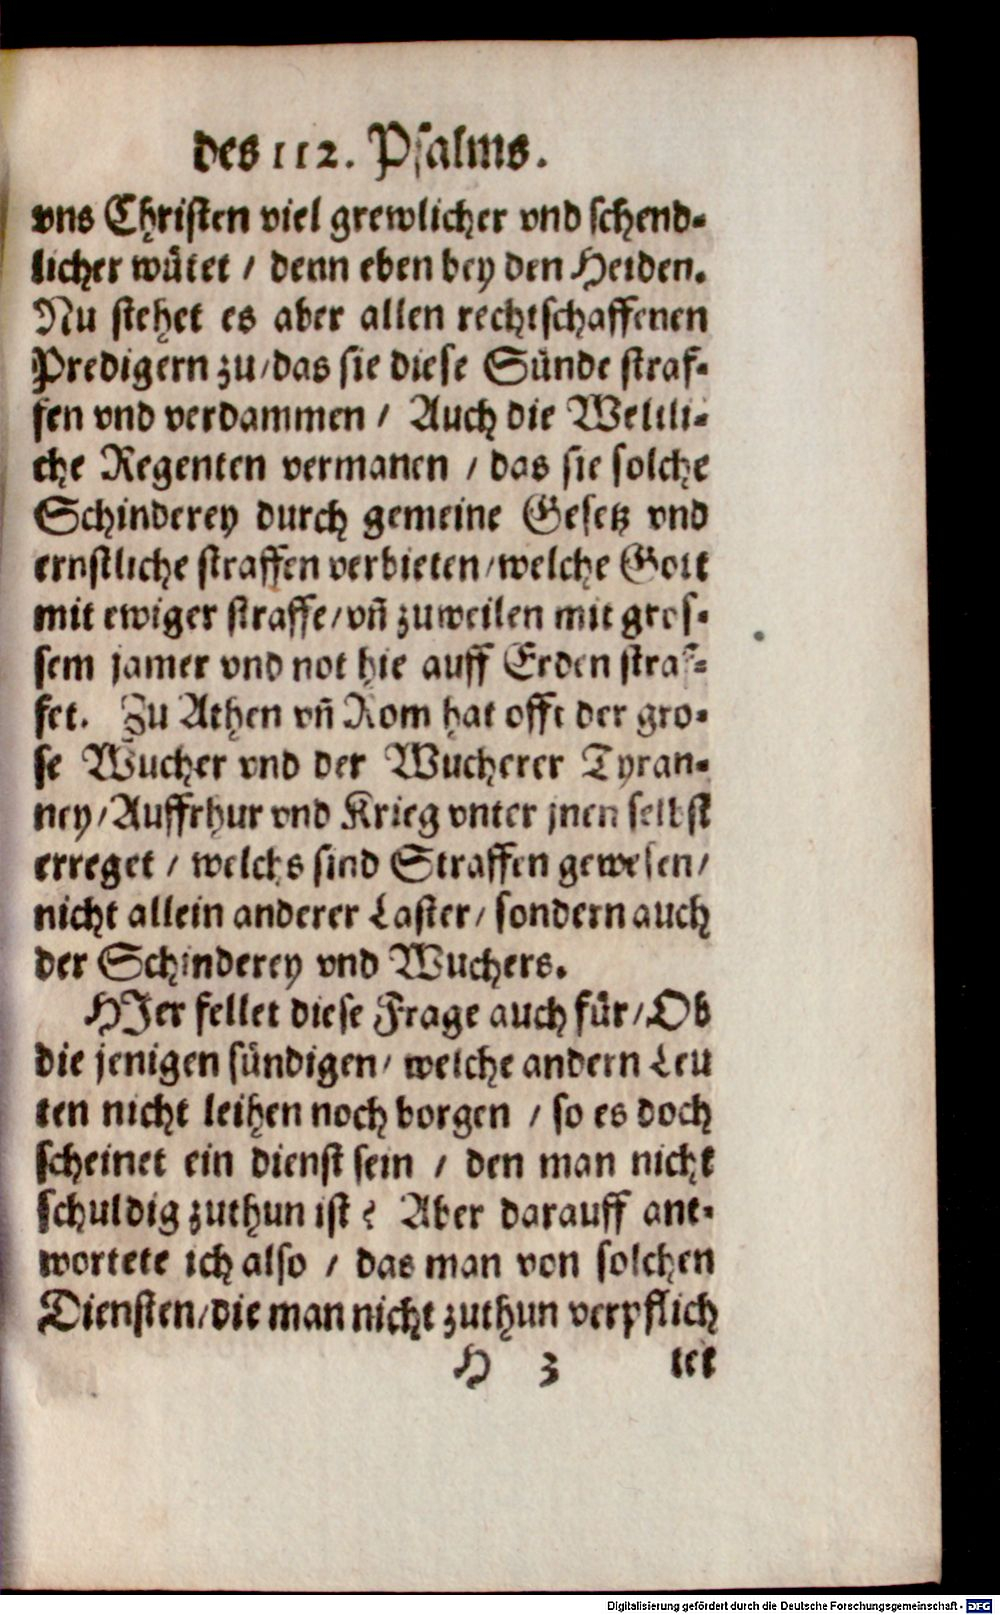 des 112. Psalms.
vns Christen viel grewlicher vnd schend-
licher wütet / denn eben bey den Heiden.
Nu stehet es aber allen rechtschaffenen
Predigern zu/das sie diese Sünde straf-
fen vnd verdammen / Auch die Weltli-
che Regenten vermanen / das sie solche
Schinderey durch gemeine Gesetz vnd
ernstliche straffen verbieten/welche Gott
mit ewiger straffe/vñ zuweilen mit gros-
sem jamer vnd not hie auff Erden straf-
fet. Zu Athen vñ Rom hat offt der gro-
se Wucher vnd der Wucherer Tyran-
ney/Auffrhur vnd Krieg vnter jnen selbst
erreget / welchs sind Straffen gewesen/
nicht allein anderer Laster/ sondern auch
der Schinderey vnd Wuchers.
HJer fellet diese Frage auch für/Ob
die jenigen sündigen/ welche andern Leu
ten nicht leihen noch borgen / so es doch
scheinet ein dienst sein / den man nicht
schuldig zuthun ist? Aber darauff ant-
wortete ich also / das man von solchen
Diensten/die man nicht zuthun verpflich
H 3 tet
Digitalisierung gefördert durch die Deutsche Forschungsgemeinschaft - DFG